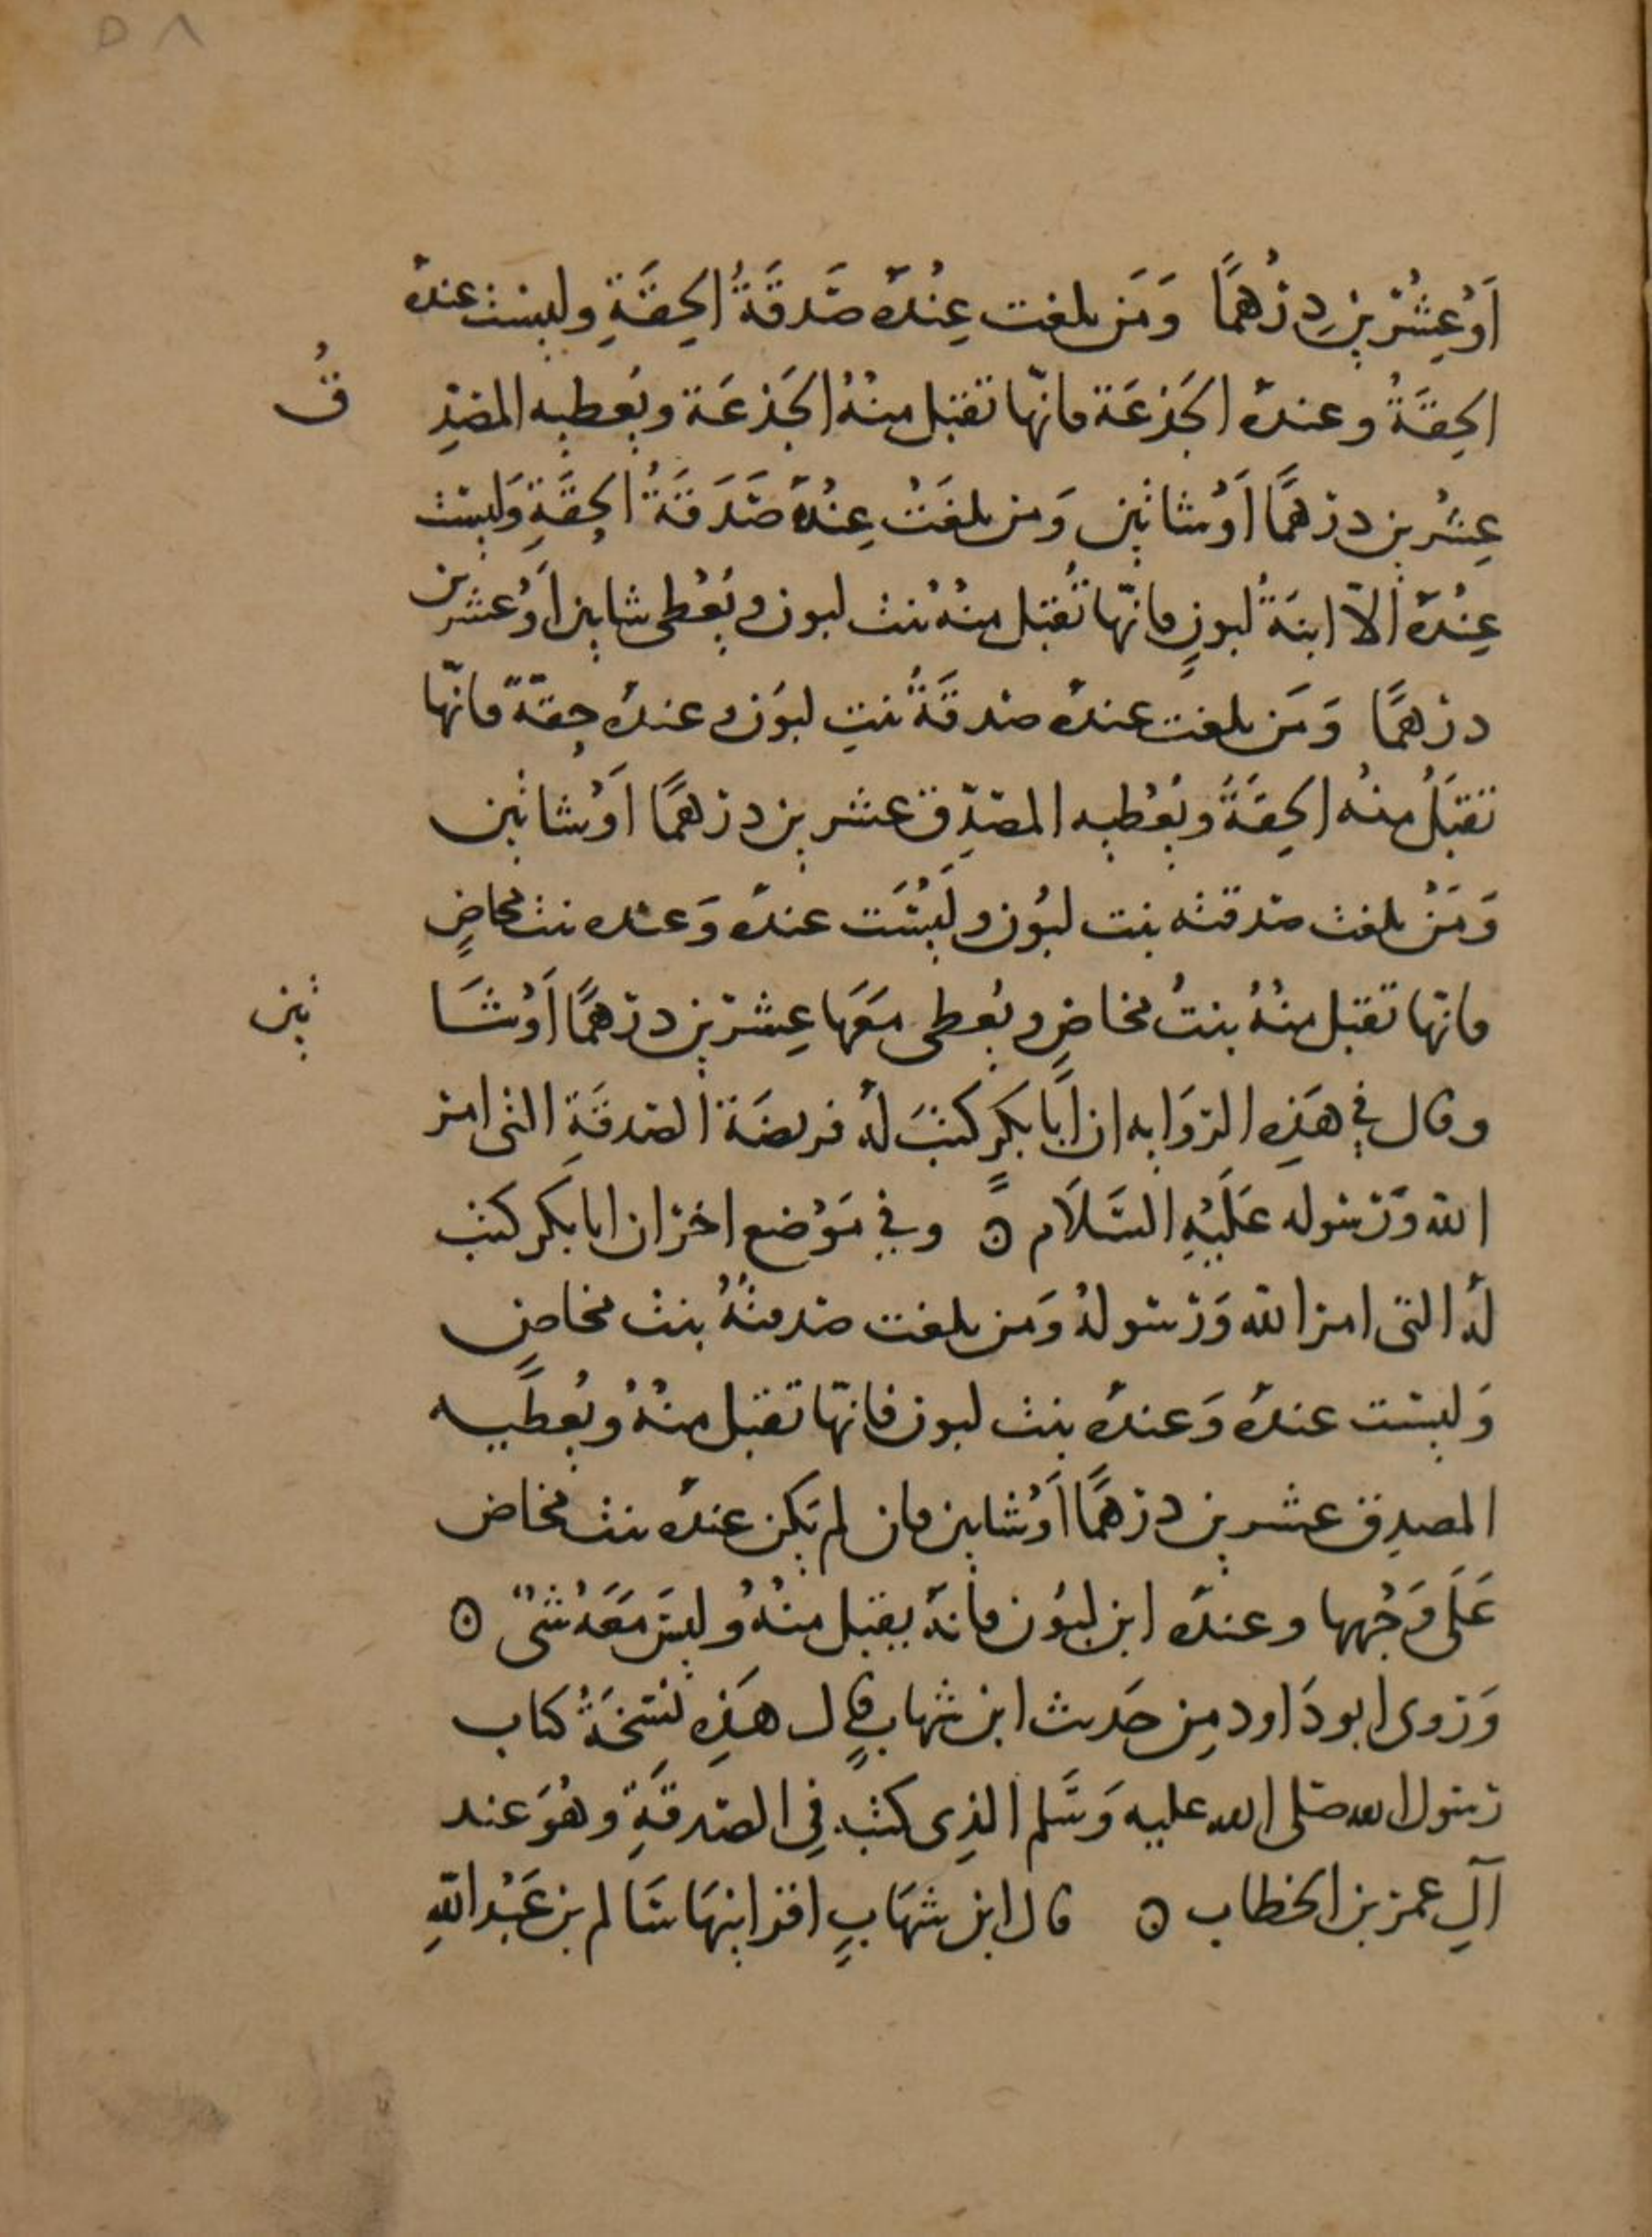 ٥٨
أَوْ عِشْرِينَ دِرْهَمًا وَمَن بلغت عِنْدَهُ صَدَقَةُ الحِقَّةِ وليست عنده
الحِقَّةُ وعنده الجَذعَة فانّها تقبل منْهُ الجَذعَة ويُعطيه المصَدِّ
قُ
عِشْرين درهمًا أوْ شاتين وَمن بلغَتْ عِنْدَهُ صَدَقَةُ الحِقَّةِ وَليست
عِنْدَهُ الاّ ابنَةُ لبونٍ فانّها تُقبل منْهُ بنت لبون ويُعْطى شاتين أوْ عشرين
درهمًا وَمَن بلغت عنده صدقَةُ بنتِ لبُون وعنده حِقّةٌ فانّها
تقبَلُ منْهُ الحِقّةُ ويُعْطيه المصَدِّق عشرين درهمًا أوْ شاتين
وَمَنْ بلغت صدقته بنت لبُون ولَيْسَت عنده وَعنده بنت مخاضٍ
فانها تقبل منْهُ بنتُ مخاضٍ ويُعطى مَعَها عِشْرين درهمًا أوْ شَا
تين
وقال في هَذِه الروَايه ان أبَا بَكرٍ كتبَ لهُ فريضَة الصدقَةِ التي امر
الله وَرَسُوله عَلَيْهِ السَّلَام ٥ وفي مَوْضع اخر ان ابا بكر كتب
لهُ التي امر الله وَرَسُولهُ وَمَن بلغت صدقتُهُ بنت مخاضٍ
وَليست عنده وَعنده بنت لبون فانّها تقبل منْهُ ويُعطيه
المصدِق عشرين درهمًا أوْ شاتين فان لم يَكن عنده بنت مخاض
عَلَى وَجْهها وعنده ابن لبُون فانهُ يقبل منْهُ وليسَ مَعَهُ شىْءٌ ٥
وَرَوى ابو دَاود مِن حَديث ابن شهابٍ قال هَذِهِ نُسْخَةُ كتاب
رَسُول الله صَلى الله عليه وَسَلم الذِي كتب في الصَدقَةِ وهُوَ عند
آلِ عمر بن الخطاب ٥ قال ابن شهَابٍ اقرانيهَا سَالم بن عَبْد اللهِ